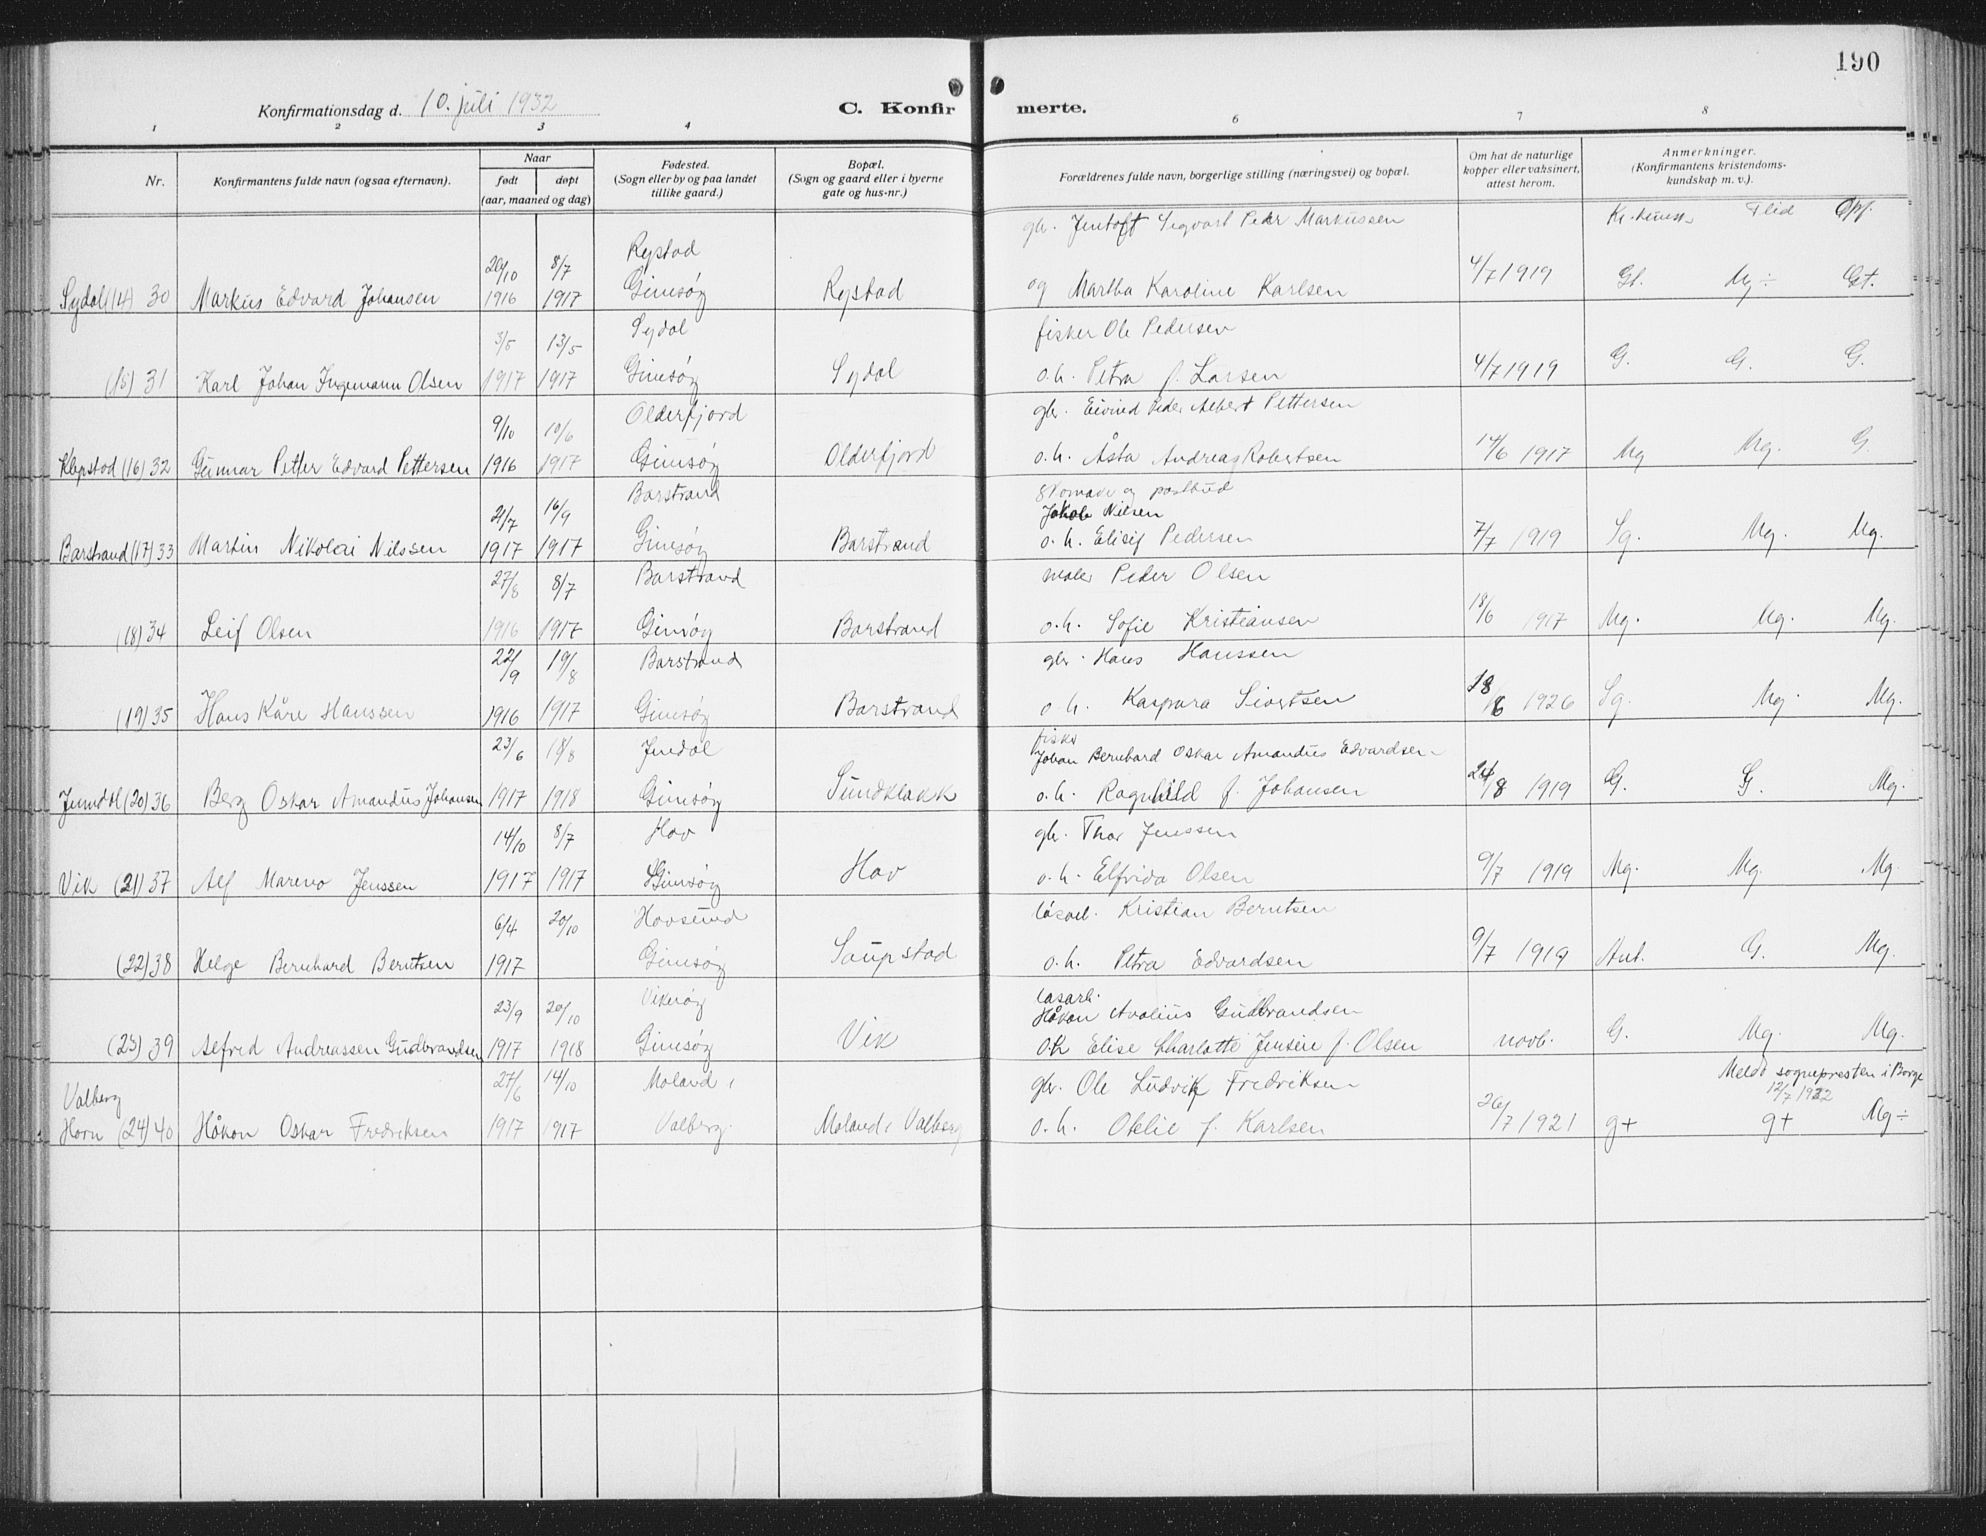 190
Konfirmationsdag d. 10. juli 1932
C. Konfirmerte.
1 2 3 4 6 7 8
Nr.
Konfirmantens fulde navn (ogsaa efternavn).
Naar
født døpt
(aar, maaned og dag)
Fødested.
(Sogn eller by og paa landet
tillike gaard.)
Bopæl.
(Sogn og gaard eller i byerne
gate og hus-nr.)
Forældrenes fulde navn, borgerlige stilling (næringsvei) og bopæl.
Om hat de naturlige
kopper eller vaksinert,
attest herom.
Anmerkninger.
(Konfirmantens kristendoms-
kundskap m. v.).
20/10 8/7 Rystad gbr. Jentoft Sigvart Peder Markussen Flid Opf.
Sydal (14) 30 Markus Edvard Johansen 1916 1917 Gimsøy Rystad og Martha Karoline Karlsen 4/7 1919 Gt. Mg÷ Gt.
3/5 13/5 Sydal fisker Ole Pedersen
(15) 31 Karl Johan Ingemann Olsen 1917 1917 Gimsøy Sydal o.h. Petra f. Larsen 4/7 1919 G. G. G.
9/10 10/6 Olderfjord gbr. Eivind Peder Albert Pettersen
Klepstad (16) 32 Gunnar Petter Edvard Pettersen 1916 1917 Gimsøy Olderfjord o.h. Åsta Andreas Robertsen 14/6 1917 Mg Mg. G.
21/7 16/9 Barstrand skomaker og postbud
Jakob Nilsen
Barstrand (17) 33 Martin Nikolai Nilssen 1917 1917 Gimsøy Barstrand o.h. Elisif Pedersen 7/7 1919 Sg. Mg. Mg.
27/8 8/7 Barstrand maler Peder Olsen
(18) 34 Leif Olsen 1916 1917 Gimsøy Barstrand o.h. Sofie Kristiansen 18/6 1917 Mg. Mg. Mg.
22/9 19/8 Barstrand gbr. Hans Hanssen
(19) 35 Hans Kåre Hanssen 1916 1917 Gimsøy Barstrand o.h. Kaspara Sivertsen 18/6 1926 Sg. Mg. Mg.
23/6 18/8 Jendal fisker
Johan Bernhard Oskar Amandus Edvardsen
Jenndal (20) 36 Berg Oskar Amandus Johansen 1917 1918 Gimsøy Sundklakk o.h. Ragnhild f. Johansen 24/8 1919 G. G. Mg.
14/10 8/7 Hov gbr. Thor Jenssen
Vik (21) 37 Alf Mareno Jenssen 1917 1917 Gimsøy Hov o.h. Elfrida Olsen 9/7 1919 Mg. Mg. Mg.
6/4 20/10 Hovsund løsarb. Kristian Berntsen
(22) 38 Helge Bernhard Berntsen 1917 Gimsøy Saupstad o.h. Petra Edvardsen 9/7 1919 Ant. G. Mg.
23/9 20/10 Vikerøy løsarb.
Håkon Avalius Gudbrandsen
(23) 39 Alfred Andreassen Gudbrandsen 1917 1918 Gimsøy Vik o.h. Elise Charlotte Jensine f. Olsen novb. G. Mg. Mg.
Valberg 27/6 14/10 Moland i gbr. Ole Ludvik Fredriksen Meldt sogneprestens i Borge
12/7 1932
Horn (24) 40 Håkon Oskar Fredriksen 1917 1917 Valberg. Moland i Valberg o.h. Oklie f. Karlsen 26/7 1921 g+ g+ Mg÷